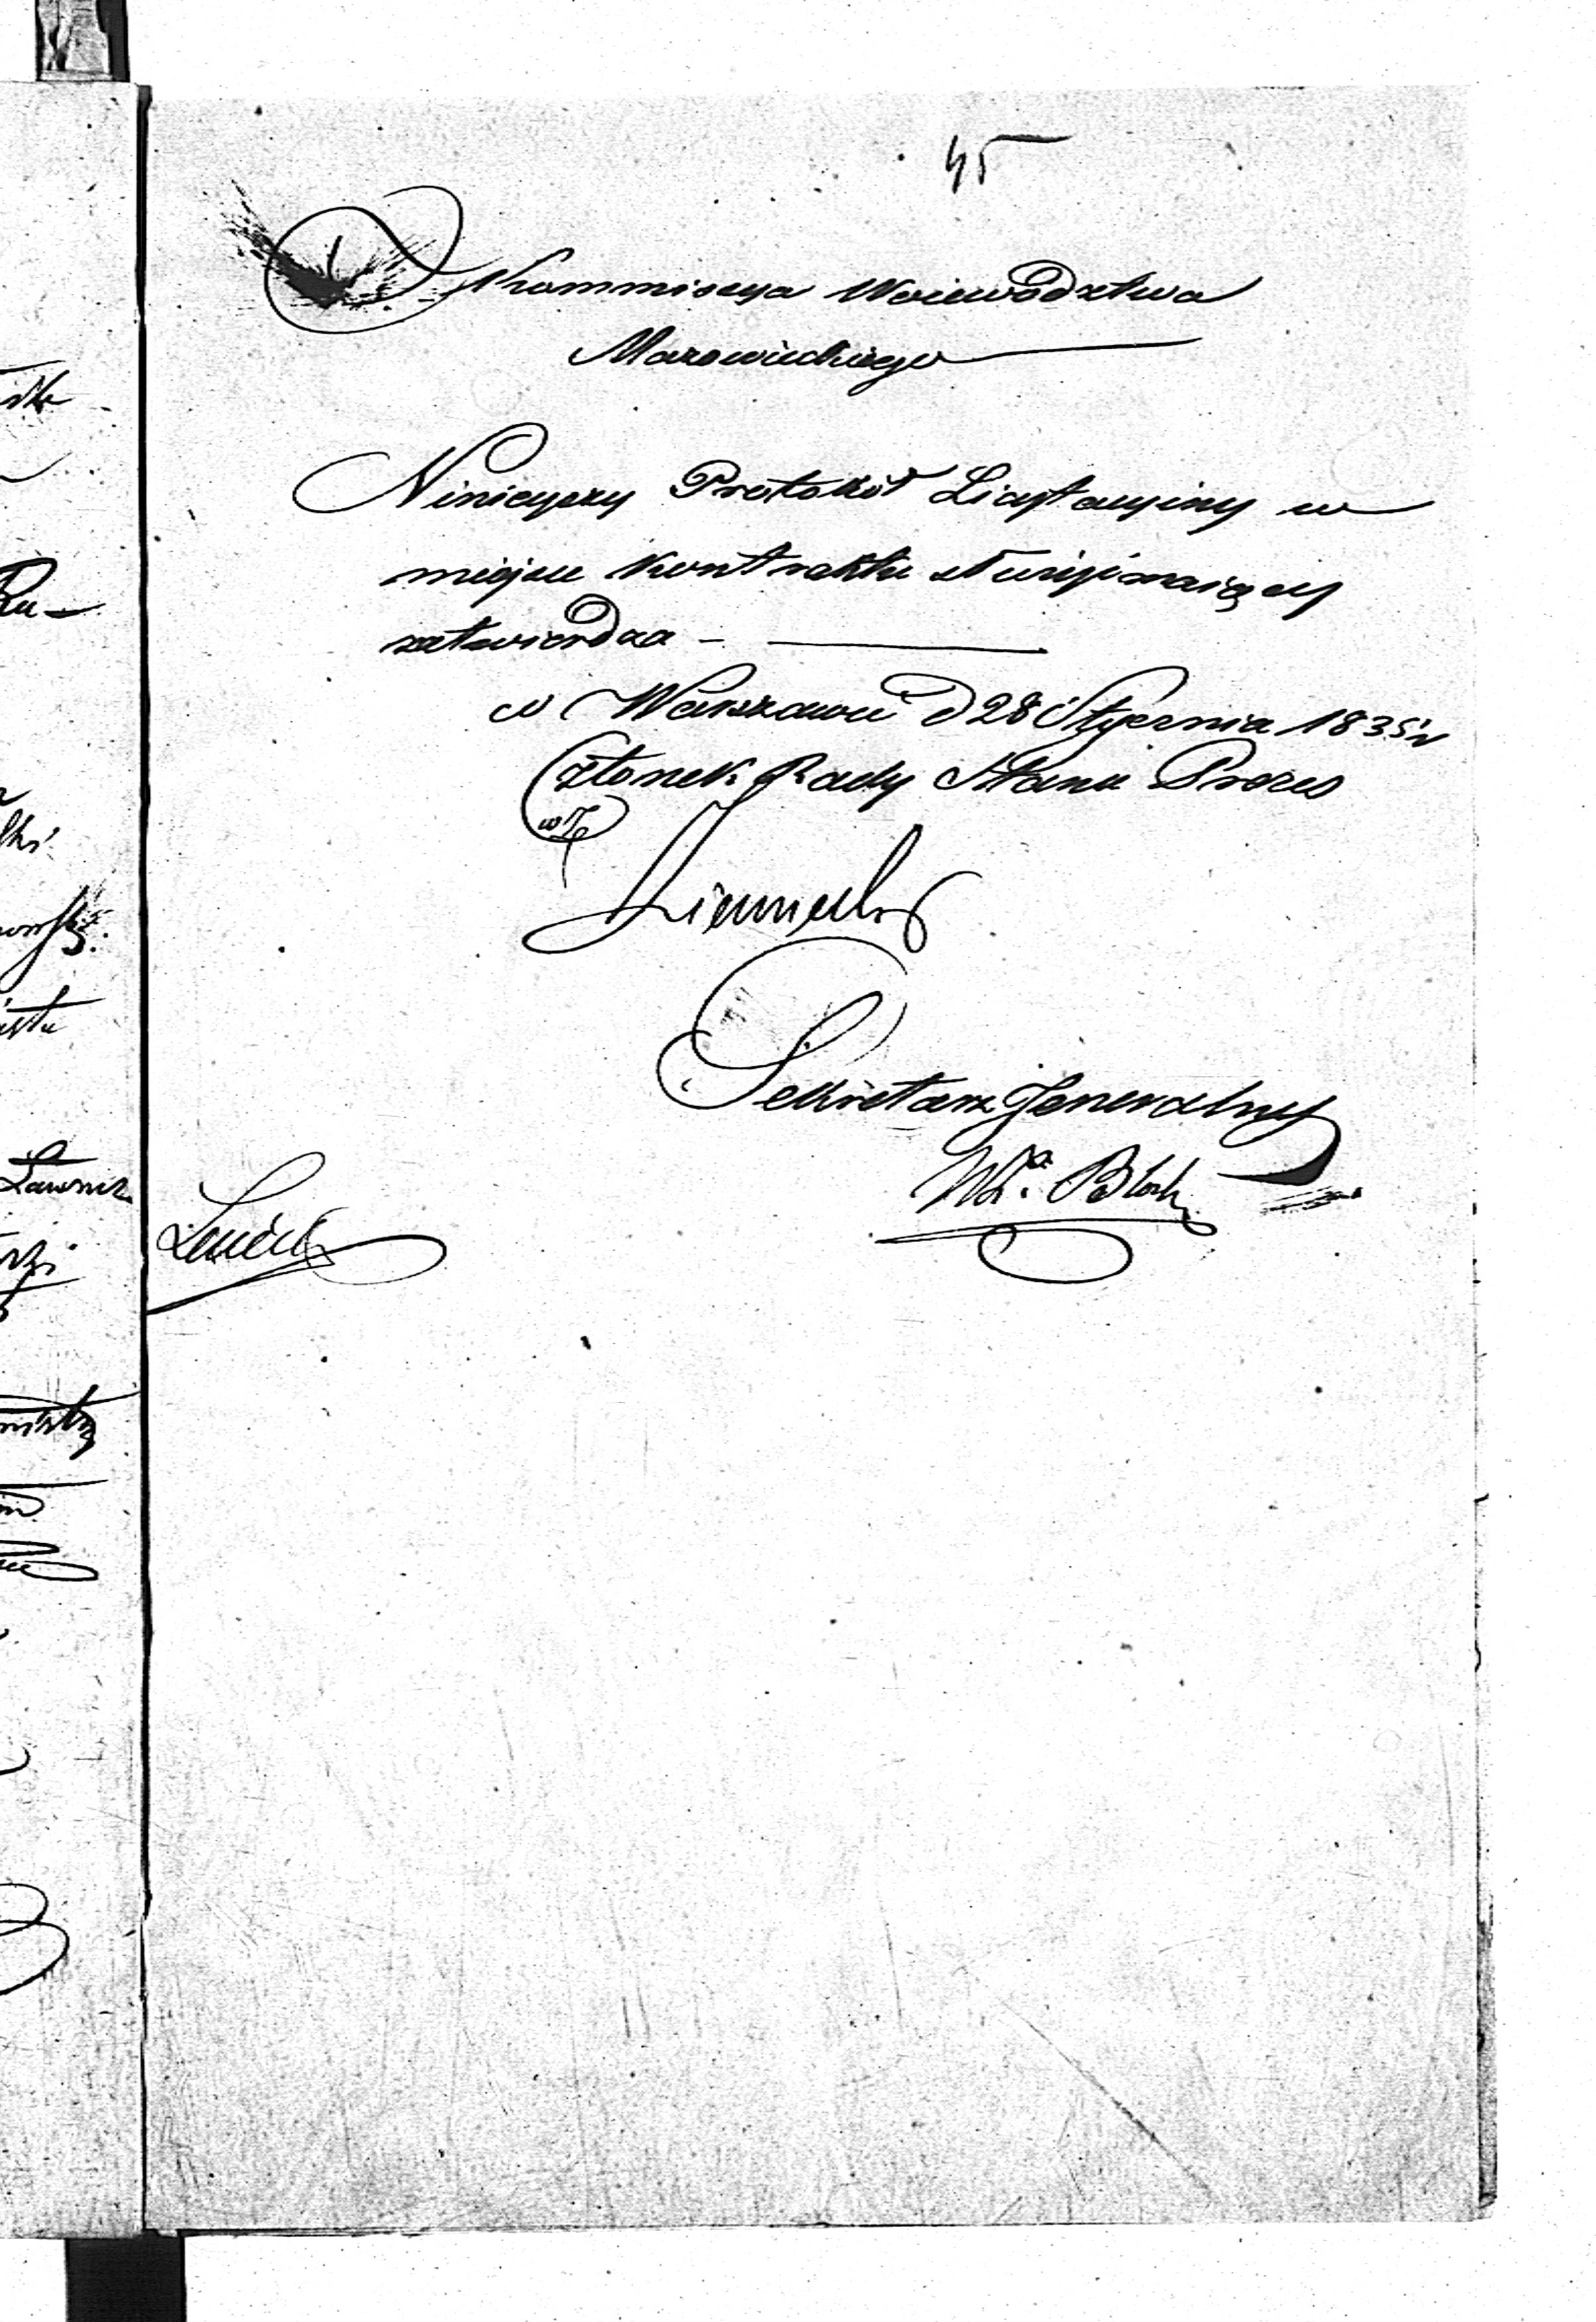 45
Kommissya Woiewództwa
Mazowieckiego
Ninieyszy Protokół Licytacyiny w
miejsce kontraktu służyć maiący
zatwierdza —
w Warszawie d 28 Stycznia 1835 r
Członek Rady Stanu Prezes
w Z
Sekretarz Jeneralny
Bloch
Ławnik